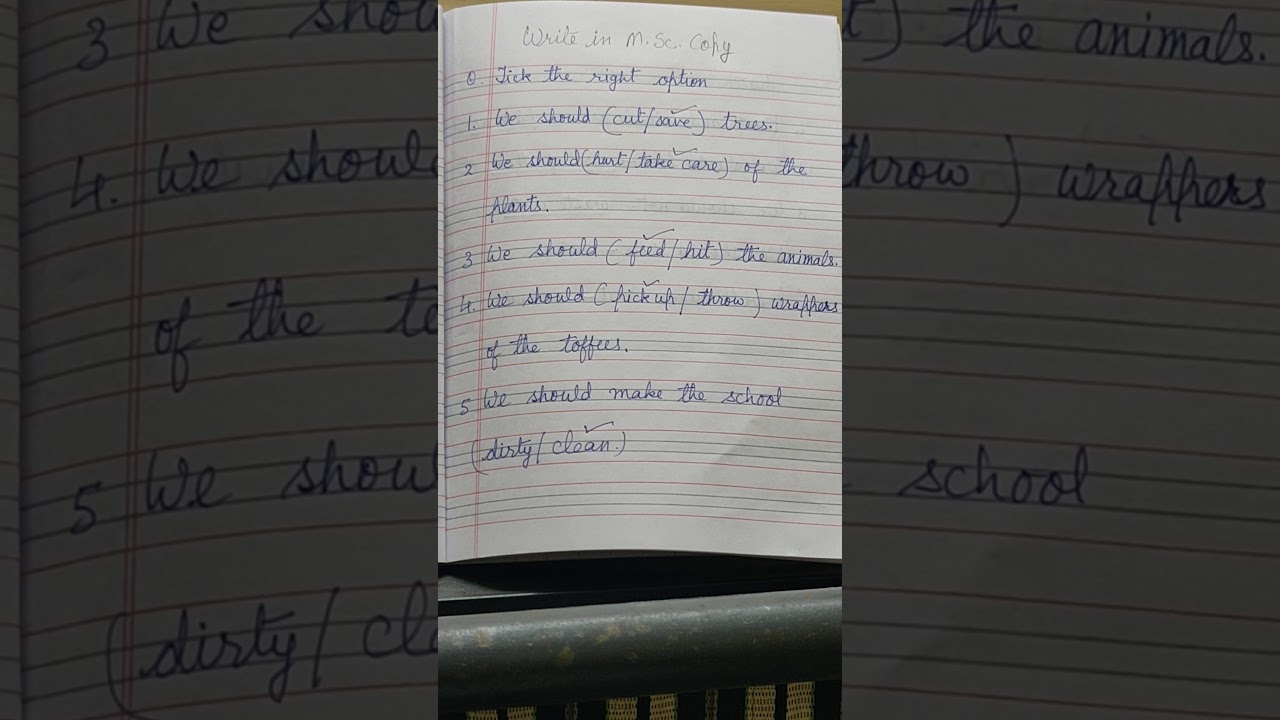 Write in M.Sc. Copy
Q. Tick the right option
1. We should (cut/save) trees.
2 We should (hurt/take care) of the
plants.
3 We should (feed/hit) the animals.
4. We should (pick up/throw) wrappers
of the toffees.
5 We should make the school
(dirty/clean.)